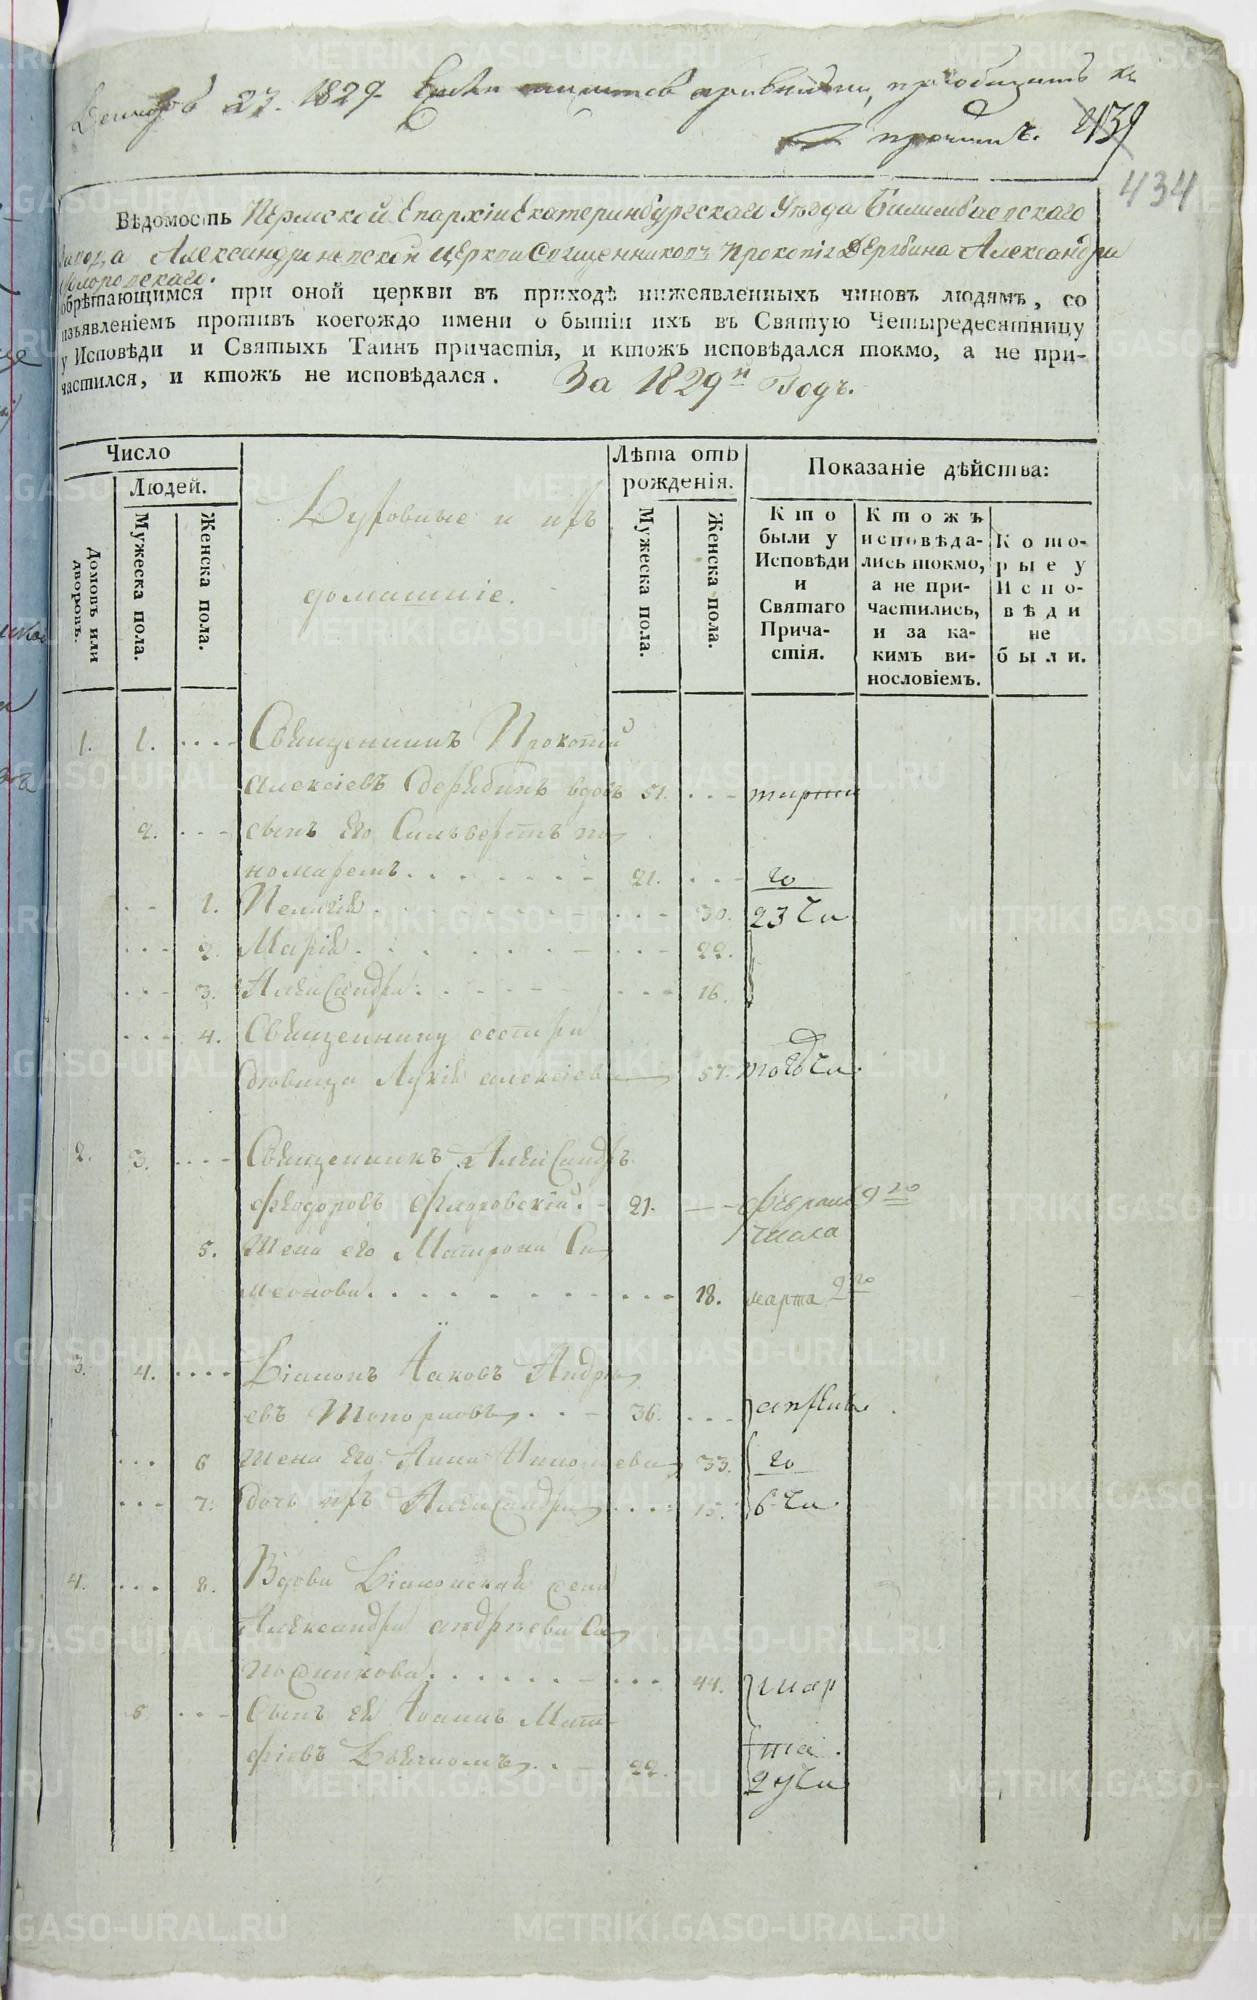 Декабря 23. 1829.
къ прочимъ.
434
Вѣдомость Пѣрмской Епархіи Екатеринбургскаго Уѣзда Билимбаевскаго
Завода Александроневской Церкви Священниковъ Прокопія Дерябина Александра
Флоровскаго.
обрѣтающимся при оной церкви въ приходѣ нижеявленныхъ чиновъ людямъ, со
изъявленіемъ противъ коегождо имени о бытіи ихъ въ Святую Четыредесятницу
у Исповѣди и Святыхъ Таинъ причастія, и ктожъ исповѣдался токмо, а не при-
частился, и ктожъ не исповѣдался. За 1829й Годъ.
Число
Людей.
Домовъ или дворовъ.
Мужеска пола.
Женска пола.
Духовные и ихъ
домашніе.
Лѣта отъ
рожденія.
Мужеска пола.
Женска пола.
Показаніе дѣйства:
Кто
были у
Исповѣди
и
Святаго
Прича-
стія.
Ктожъ
исповѣда-
лись токмо,
а не при-
частились,
и за ка-
кимъ ви-
нословіемъ.
Кото-
рые у
Испо-
вѣди
не
были.
1. 1. Священникъ Прокопій
Алексіевъ Дерябинъ вдовъ 51. марта
2. сынъ Его Сильверстъ по
номаремъ 21. го
1. Пелагія 30. 23 чи
2. Марія 22.
3. Александра 16.
4. Священнику сестра
вдовица Лукія Алексіева 57.
2. 3. Священникъ Александръ
Феодоровъ Флоровскій 21. Февраля 9го
числа
5. Жена его Матрона Си
меонова 18. марта 2го
3. 4. Діаконъ Іаковъ Андре
евъ Топорковъ 36. апрѣля
6 Жена Его Анна Николаева 33. го
7. Дочь ихъ Александра 15. 6 чи
4. 8. Вдова Діаконская жена
Александра Андреева Са
пожникова 44. мар
5 Сынъ Ея Іоаннъ Мат-
фіевъ Дьячкомъ 22. та